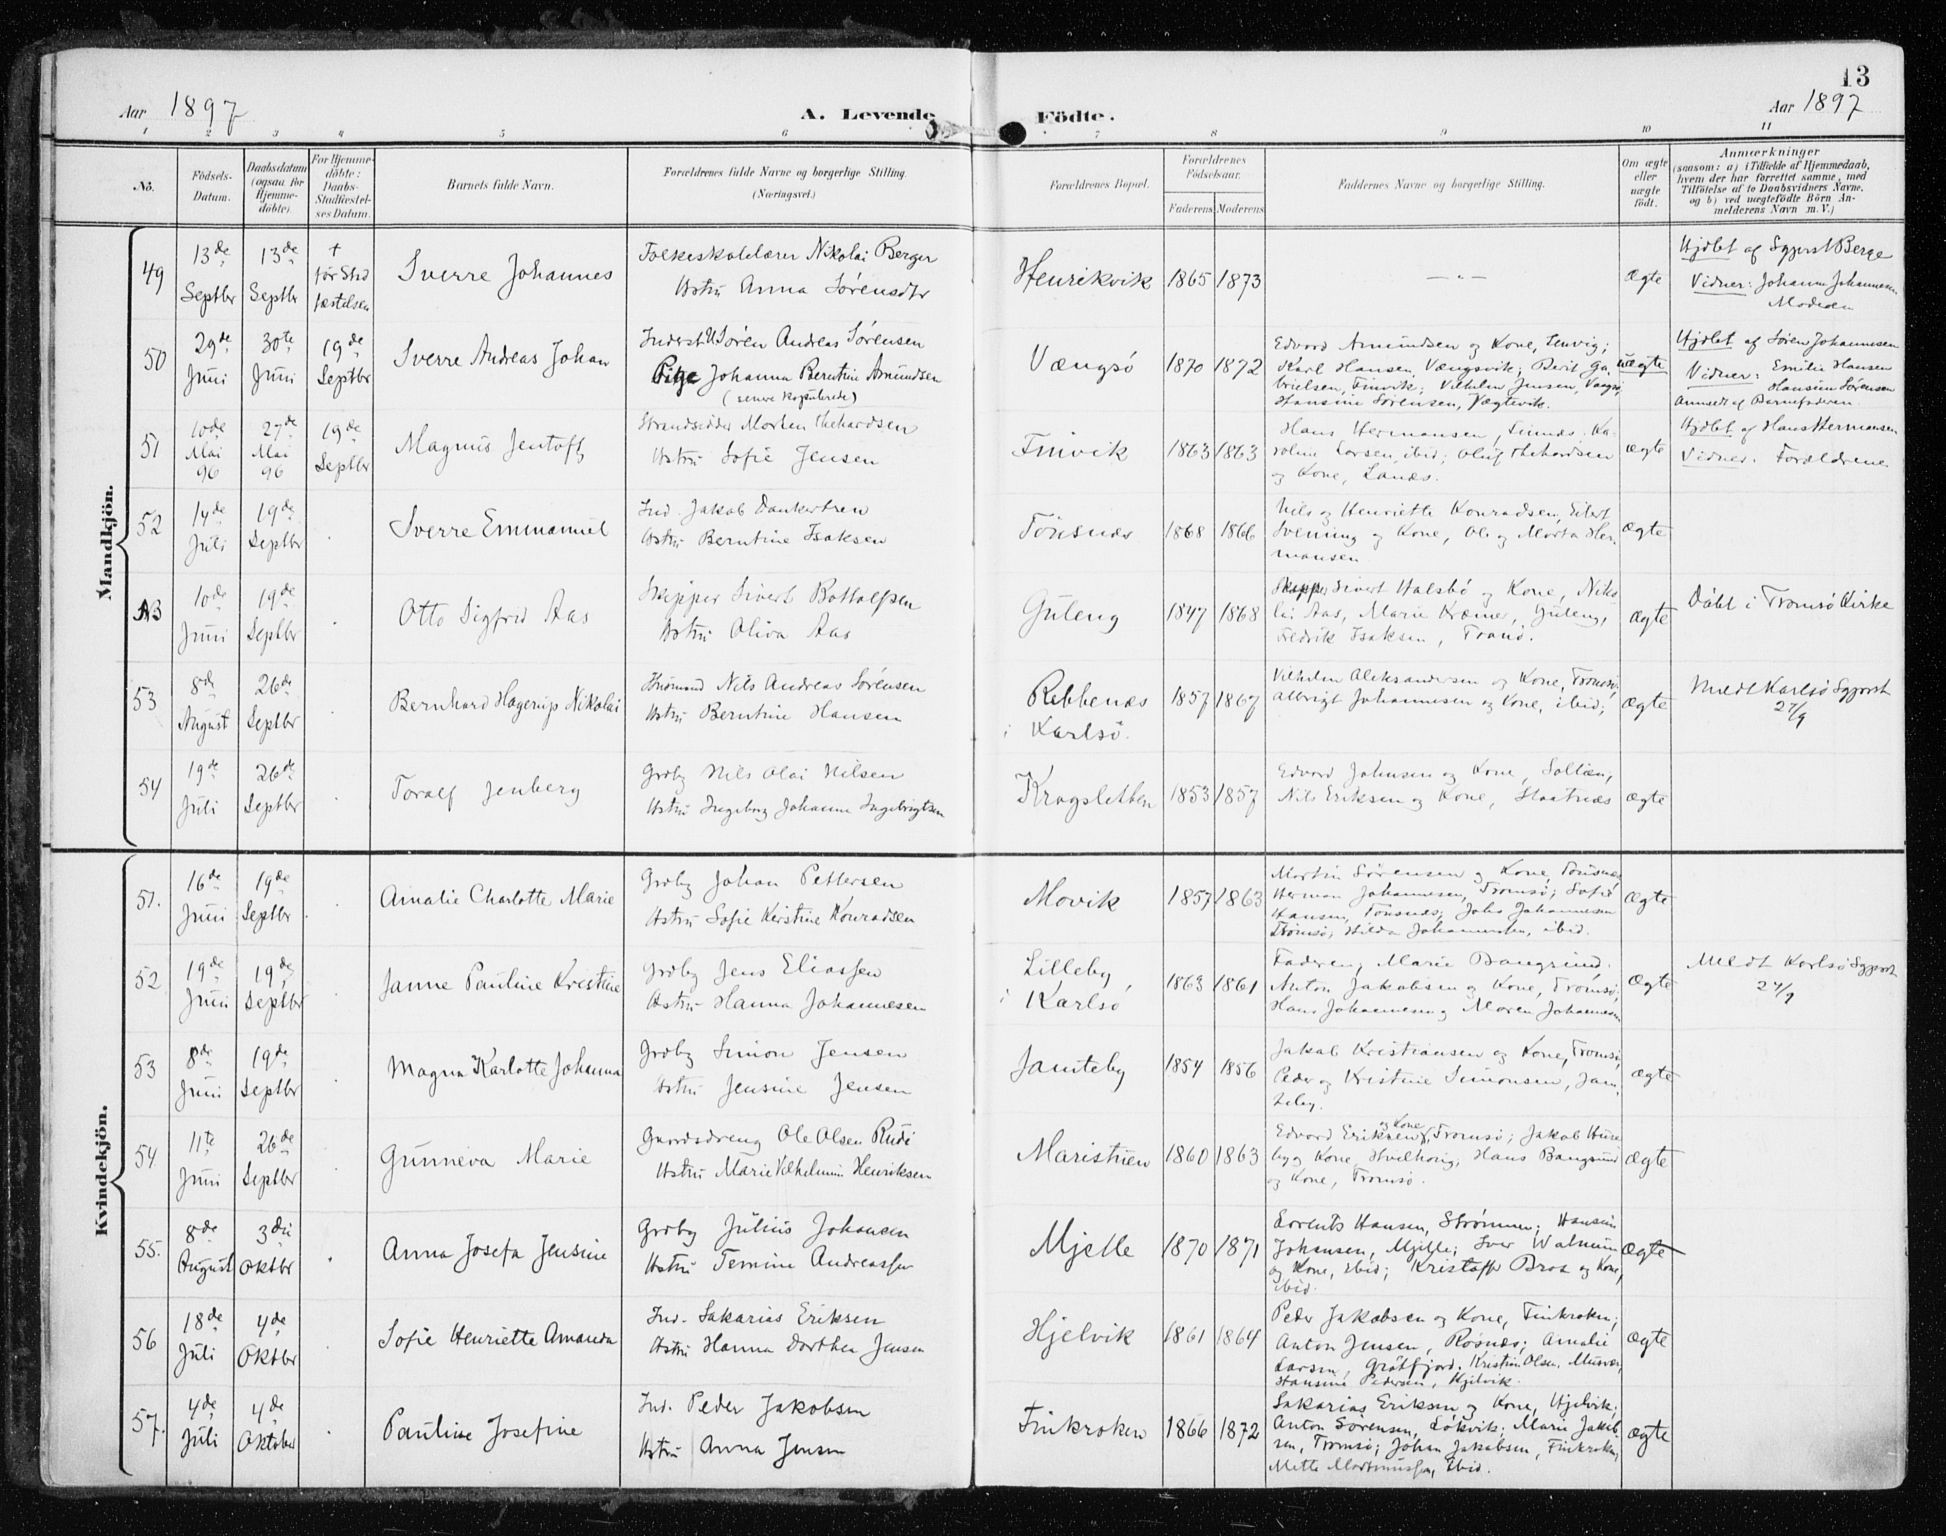 13
Aar 1897
A. Levende
Födte.
Aar 1897
1 2 3 4 5 6 7 8 9 10 11
No.
Födsels-
Datum.
Daabsdatum
(ogsaa for
Hjemme-
döbte).
For Hjemme-
döbte:
Daabs-
Stadfæstel-
ses Datum.
Barnets fulde Navn.
Forældrenes fulde Navne og borgerlige Stilling.
(Næringsvei.)
Forældrenes Bopæl.
Forældrenes
Födselsaar.
Faderens Moderens
Faddernes Navne og borgerlige Stilling.
Om ægte
eller
uægte
födt.
Anmærkninger
(saasom: a) i Tilfælde af Hjemmedaab,
hvem der har forrettet samme, med
Tilföielse af to Daabsvidners Navne,
og b) ved uægtefödte Börn An-
melderens Navn m. V.)
Mandkjön.
49
13de
Septbr
13de
Septbr
†
før Stad
fæstelsen
Sverre Johannes
Folkeskolelærer Nikolai Berger
Hstru Anna Sørensdtr
Henrikvik
1865 1873
— " —
Ægte
Hjdbt af Sgprst Berge
Vidner: Johanna Johannesen
50
29de
Juni
30te
Juni
19de
Septbr
Sverre Andreas Johan
Inderst Søren Andreas Sørensen
Pige Johanna Berntine Amundsen
(senere kopulerede)
Vængsø
1870 1872
Edvard Amundsen og Kone, Lenvig;
Karl Hansen, Vængsvik; Berit Ga-
brielsen, Finvik; Vilhelm Jensen, Vængsø,
Hansine Sørensen, Vægtevik.
uægte
Hjdbt af Søren Johannesen
Vidner: Emilie Hansen
Hansine Sørensen
Anmeldt af Barnefaderen.
51
10de
Mai
96
27de
Mai
96
19de
Septbr
Magnus Jentoft
Strandsidder Morten Thehardsen
Hstru Sofie Jensen
Finvik
1863 1863
Hans Hermansen, Ka-
roline Larsen, ibid; Oluf Thehardsen
og Kone, Lanæs.
Ægte
Hjdbt af Hans Hermansen
Vidner: Forældrene
52
14de
Juli
19de
Septbr
Sverre Emmanuel
Ind. Jakob Dankertsen
Hstru Berntine Isaksen
Tønsnæs
1868 1866
Nils og Henriette Konradsen, Eilert
Svenning og Kone, Ole og Marta Her-
mansen
Ægte
N3
10de
Juni
19de
Septbr
Otto Sigfrid Aas
Skipper Sivert Bottolfsen
Hstru Oliva Aas
Guleng
1847 1868
Skipper Sivert Halsbø og Kone, Niko-
lai Aas, Marie Kræmer, Guleng,
Fredrik Isaksen, Tranø.
Ægte
Døbt i Tromsø Kirke
53
8de
August
26de
Septbr
Bernhard Hagerup Nikolai
Husmand Nils Andreas Sørensen
Hstru Berntine Hansen
Rebbenæs
i Karlsø.
1857 1867
Vilhelm Aleksandersen og Kone, Tromsø,
Albrigt Johannesen og Kone, ibid;
Ægte
Meldt Karlsø Sgprst
27/9
54
19de
Juli
26de
Septbr
Toralf Jenberg
Grdbg Nils Olai Nilsen
Hstru Ingeborg Johanne Ingebrigtsen
Kragsletten
1853 1857
Edvard Johnsen og Kone, Soltun,
Nils Eriksen og Kone, Skaatnæs
Ægte
Kvindekjön.
51.
16de
Juni
19de
Septbr
Amalie Charlotte Marie
Grdbg Johan Pettersen
Hstru Sofie Kerstine Konradsen
Movik
1857 1863
Martin Sørensen og Kone, Tønsnæs
Herman Johannesen, Tromsø; Sofie
Hansen, Tønsnæs; Johs Johannesen
Tromsø; Hilda Johannesen, ibid.
Ægte
52
19de
Juni
19de
Septbr
Janne Pauline Kristine
Grdbg Jens Eliassen
Hstru Hanna Johannesen
Lilleby
i Karlsø
1863 1861
Faderen; Marie Bangsund.
Anton Jakobsen og Kone, Tromsø,
Hans Johannesen og Maren Johannesen
Ægte
Meldt Karlsø Sgprst
27/9
53
8de
Juni
19de
Septbr
Magna Karlotte Johanna
Grdbg Simon Jensen
Hstru Jensine Jensen
Jamteby
1854 1856
Jakob Kristiansen og Kone, Tromsø,
Peder og Kristine Simonsen, Jam-
teby.
Ægte
54
11te
Juni
26de
Septbr
Gunneva Marie
Gaardsdreng Ole Olsen Rudi
Hstru Marie Vilhelmine Henriksen
Maristuen
1860 1863
Edvard Eriksen og Kone, Tromsø; Jakob Huse-
by og Kone, Hvilhoug; Hans Bangsund
og Kone, Tromsø.
Ægte
55.
8de
August
3die
Oktbr
Anna Josefa Jensine
Grdbg Julius Johansen
Hstru Temine Andreassen
Mjelle
1870 1871
Lorents Hansen, Strømmen; Hansine
Johansen, Mjelle; Iver Walnum
og Kone, Ibid; Kristoffer Bros og Kone,
ibid.
Ægte
56
18de
Juli
4de
Oktbr
Sofie Henriette Amanda
Ind. Sakarias Eriksen
Hstru Hanna Dorthea Jensen
Hjelvik
1861 1864
Peder Jakobsen og Kone, Finkroken;
Anton Jensen, Røsnæs; Amalie
Larsen, Grøtfjord. Kristine Olsen, Musvær,
Hansine Pedersen, Hjelvik.
Ægte
57.
4de
Juli
4de
Oktober
Pauline Josefine
Ind. Peder Jakobsen
Hstru Anna Jensen
Finkroken
1866 1872
Sakarias Eriksen og Kone, Hjelvik;
Anton Sørensen, Løkvik; Marie Jakob-
sen, Tromsø; Johan Jakobsen, Finkroken;
Mette Martinussen, Ibid.
Ægte